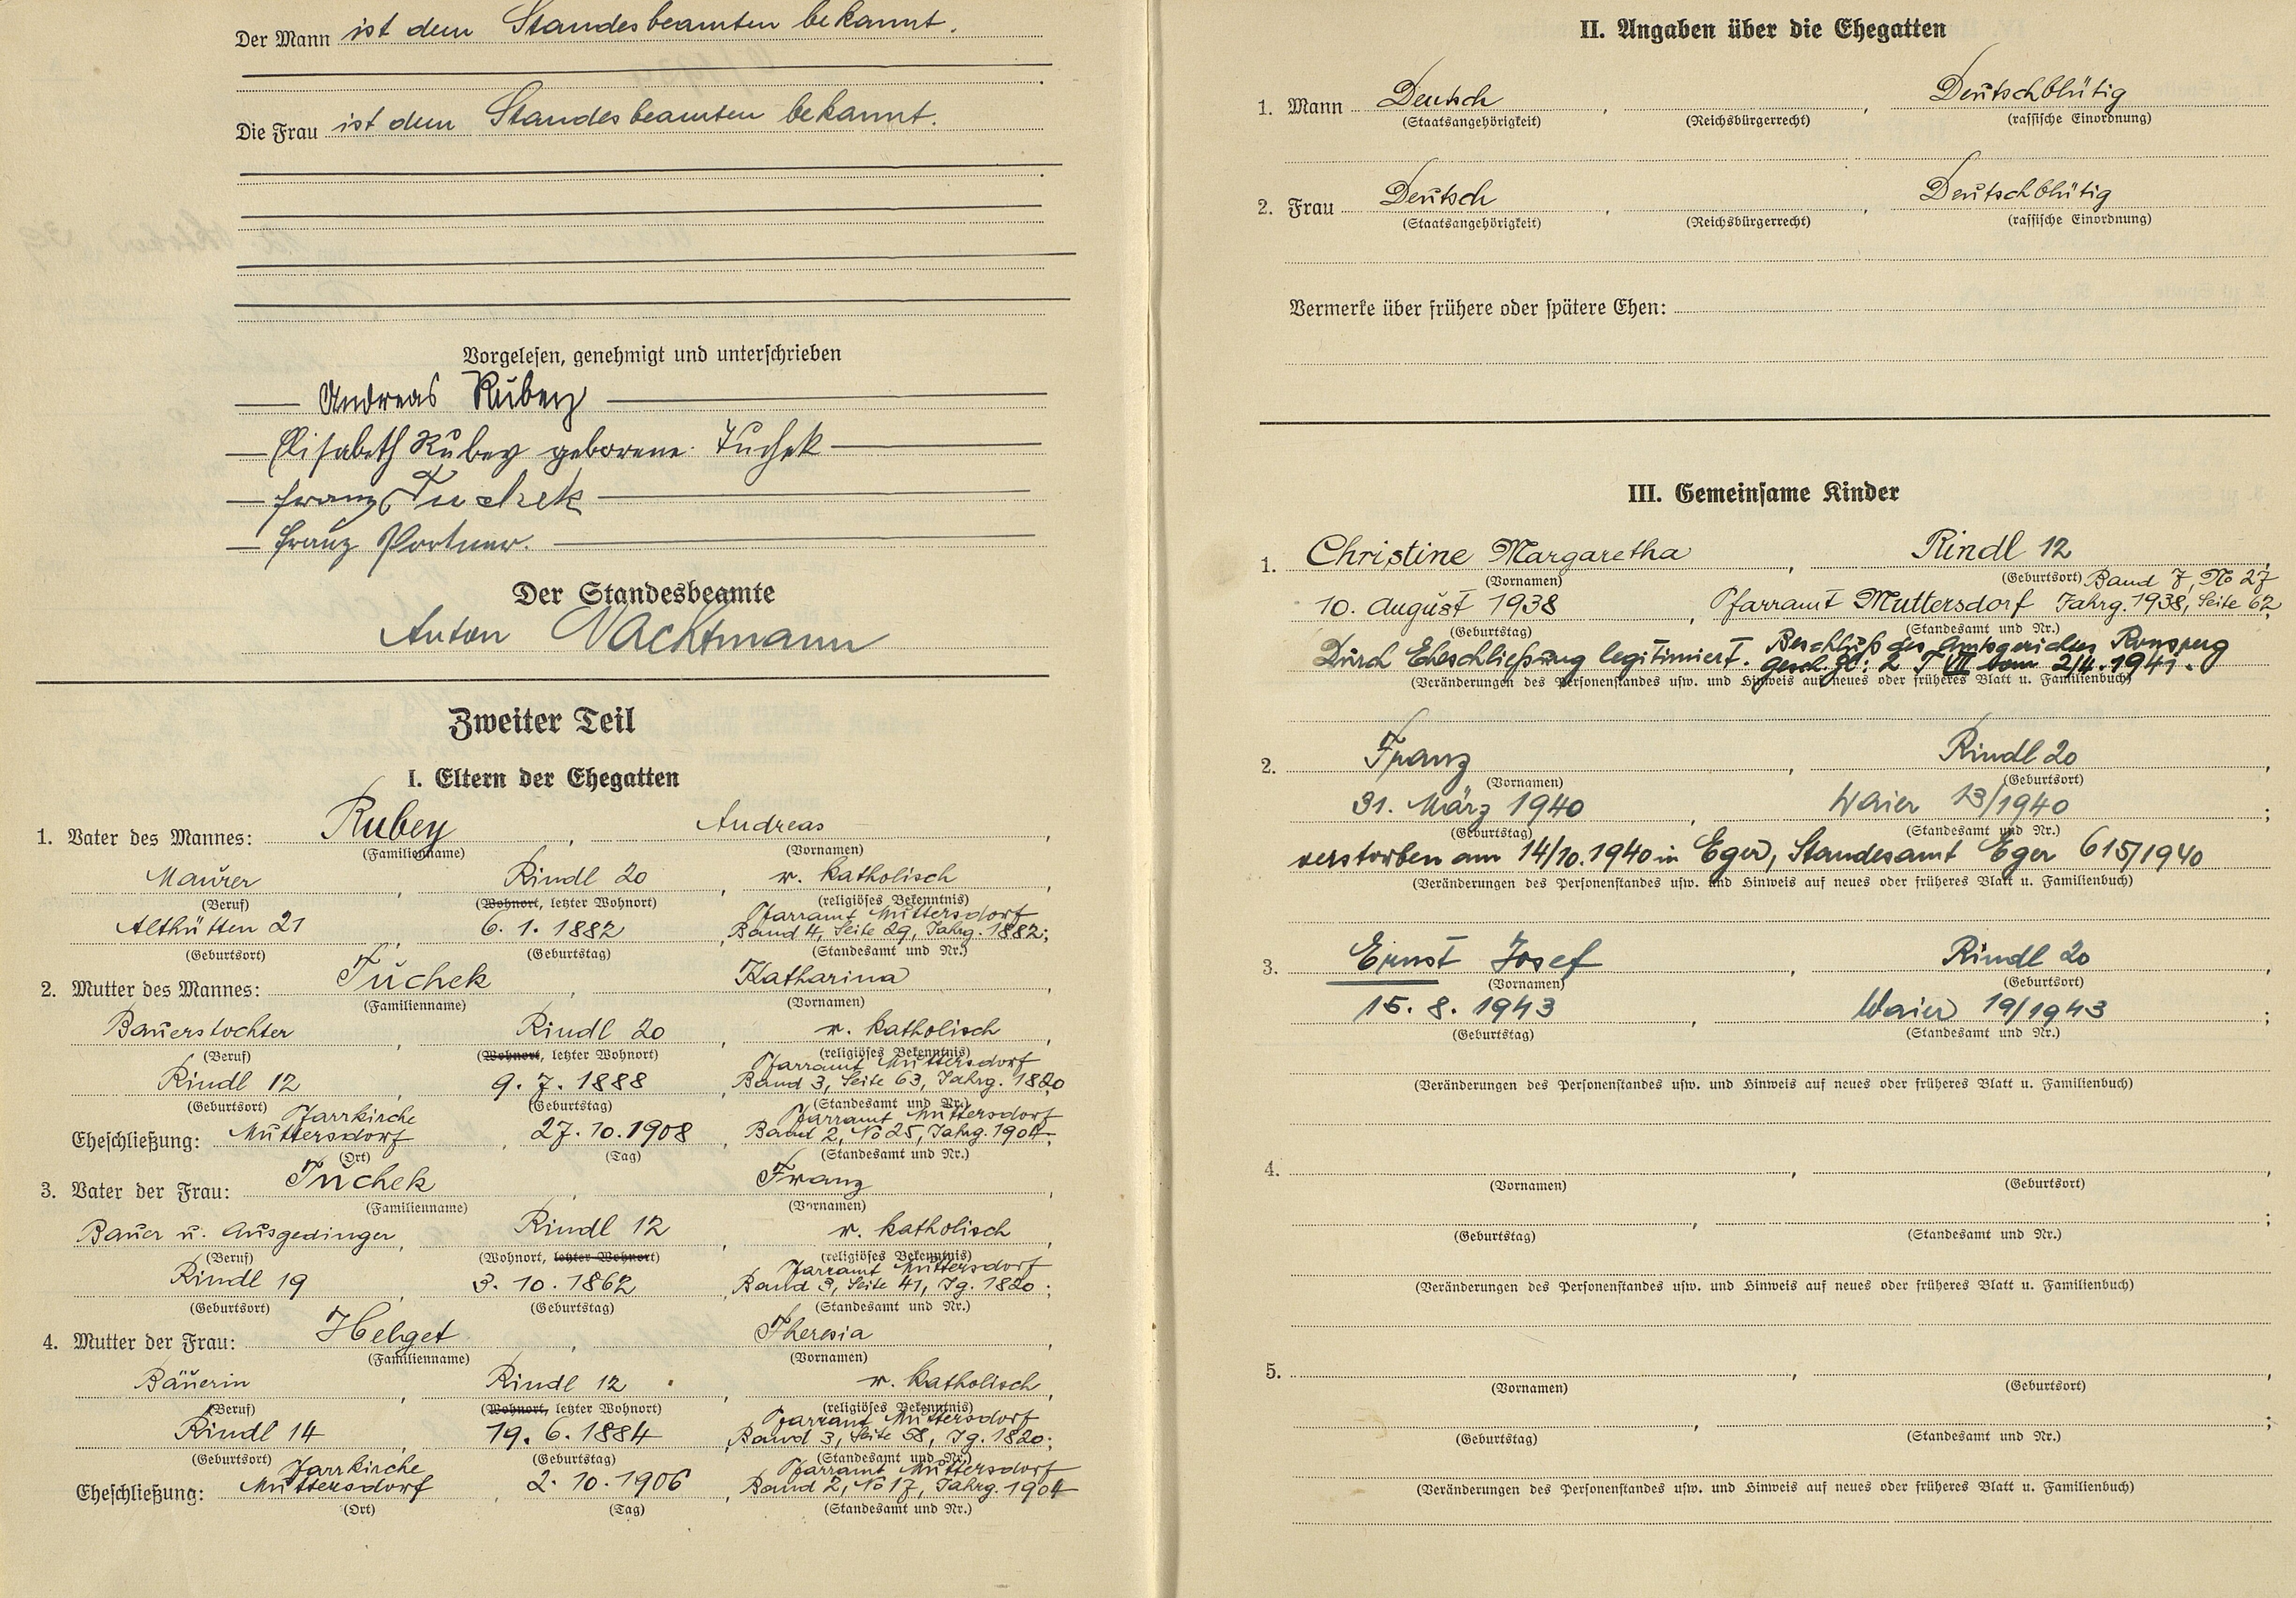 Der Mann ist dem Standesbeamten bekannt.
Die Frau ist dem Standesbeamten bekannt.
Vorgelesen, genehmigt und unterschrieben
Andreas Rubey
Elisabeth Rubey geborene Tuchek
Franz Tuchek
Franz Portner.
Der Standesbeamte
Anton Wachtmann
Zweiter Teil
I. Eltern der Ehegatten
1. Vater des Mannes: Rubey, Andreas,
(Familienname) (Vornamen)
Maurer, Rindl 20, r. katholisch,
(Beruf) (Wohnort, letzter Wohnort) (religiöses Bekenntnis)
Pfarramt Muttersdorf
Althütten 21, 6. 1. 1882, Band 4, Seite 29, Jahrg. 1882;
(Geburtsort) (Geburtstag) (Standesamt und Nr.)
2. Mutter des Mannes: Tuchek, Katharina,
(Familienname) (Vornamen)
Bauerstochter, Rindl 20, r. katholisch,
(Beruf) (Wohnort, letzter Wohnort) (religiöses Bekenntnis)
Pfarramt Muttersdorf
Rindl 12, 9. 7. 1888, Band 3, Seite 63, Jahrg. 1820
(Geburtsort) (Geburtstag) (Standesamt und Nr.)
Pfarrkirche Pfarramt Muttersdorf
Eheschließung: Muttersdorf, 27. 10. 1908, Band 2, No 25, Jahrg. 1904;
(Ort) (Tag) (Standesamt und Nr.)
3. Vater der Frau: Tuchek, Franz,
(Familienname) (Vornamen)
Bauer u. Ausgedinger, Rindl 12, r. katholisch,
(Beruf) (Wohnort, letzter Wohnort) (religiöses Bekenntnis)
Pfarramt Muttersdorf
Rindl 19, 3. 10. 1862, Band 3, Seite 41, Jg. 1820;
(Geburtsort) (Geburtstag) (Standesamt und Nr.)
4. Mutter der Frau: Helget, Theresia,
(Familienname) (Vornamen)
Bäuerin, Rindl 12, r. katholisch,
(Beruf) (Wohnort, letzter Wohnort) (religiöses Bekenntnis)
Pfarramt Muttersdorf
Rindl 14, 19. 6. 1884, Band 3, Seite 58, Jg. 1820;
(Geburtsort) (Geburtstag) (Standesamt und Nr.)
Pfarrkirche Pfarramt Muttersdorf
Eheschließung: Muttersdorf, 2. 10. 1906, Band 2, No 17, Jahrg. 1904
(Ort) (Tag) (Standesamt und Nr.)
II. Angaben über die Ehegatten
1. Mann Deutsch, , Deutschblütig
(Staatsangehörigkeit) (Reichsbürgerrecht) (rassische Einordnung)
2. Frau Deutsch, , Deutschblütig
(Staatsangehörigkeit) (Reichsbürgerrecht) (rassische Einordnung)
Vermerke über frühere oder spätere Ehen:
III. Gemeinsame Kinder
1. Christine Margaretha, Rindl 12,
(Vornamen) (Geburtsort) Band 7, No 27
10. August 1938, Pfarramt Muttersdorf Jahrg. 1938, Seite 62;
(Geburtstag) (Standesamt und Nr.)
Durch Eheschließung legitimiert. Beschluß des Amtsgerichtes Ronsperg
gesch. Zl: 2 T VII vom 2/4. 1941.
(Veränderungen des Personenstandes usw. und Hinweis auf neues oder früheres Blatt u. Familienbuch)
2. Franz, Rindl 20,
(Vornamen) (Geburtsort)
31. März 1940, Waier 13/1940;
(Geburtstag) (Standesamt und Nr.)
verstorben am 14/10. 1940 in Eger, Standesamt Eger 615/1940
(Veränderungen des Personenstandes usw. und Hinweis auf neues oder früheres Blatt u. Familienbuch)
3. Ernst Josef, Rindl 20,
(Vornamen) (Geburtsort)
15. 8. 1943, Waier 19/1943;
(Geburtstag) (Standesamt und Nr.)
(Veränderungen des Personenstandes usw. und Hinweis auf neues oder früheres Blatt u. Familienbuch)
4. , ,
(Vornamen) (Geburtsort)
, ;
(Geburtstag) (Standesamt und Nr.)
(Veränderungen des Personenstandes usw. und Hinweis auf neues oder früheres Blatt u. Familienbuch)
5. , ,
(Vornamen) (Geburtsort)
, ;
(Geburtstag) (Standesamt und Nr.)
(Veränderungen des Personenstandes usw. und Hinweis auf neues oder früheres Blatt u. Familienbuch)